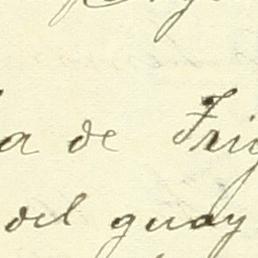 a de Frig
del guay